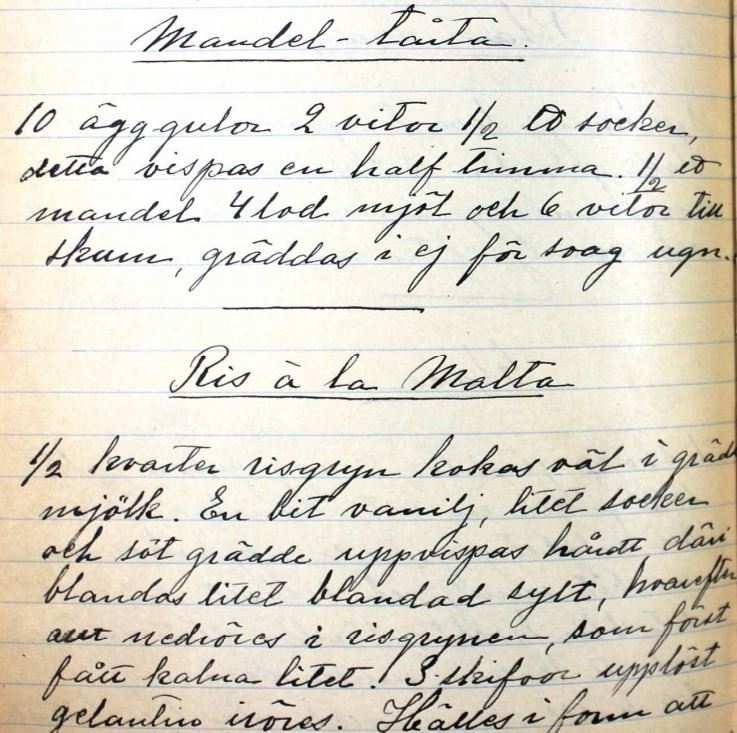 Mandel-tårta.
10 äggulor 2 vitor 1/2 ℔ socker,
detta vispas en half timma. 1/2 ℔
mandel 4 lod mjöl och 6 vitor till
skum, gräddas i ej för svag ugn.
Ris à la Malta
1/2 kvarter risgryn kokas väl i grädd
mjölk. En bit vanilj, litet socker
och söt grädde uppvispas hårdt däri
blandas litet blandad sylt, hvarefter
allt nedröres i risgrynen, som först
fått kalna litet. 3 skifvor upplöst
gelantin iröres. Hälles i form att